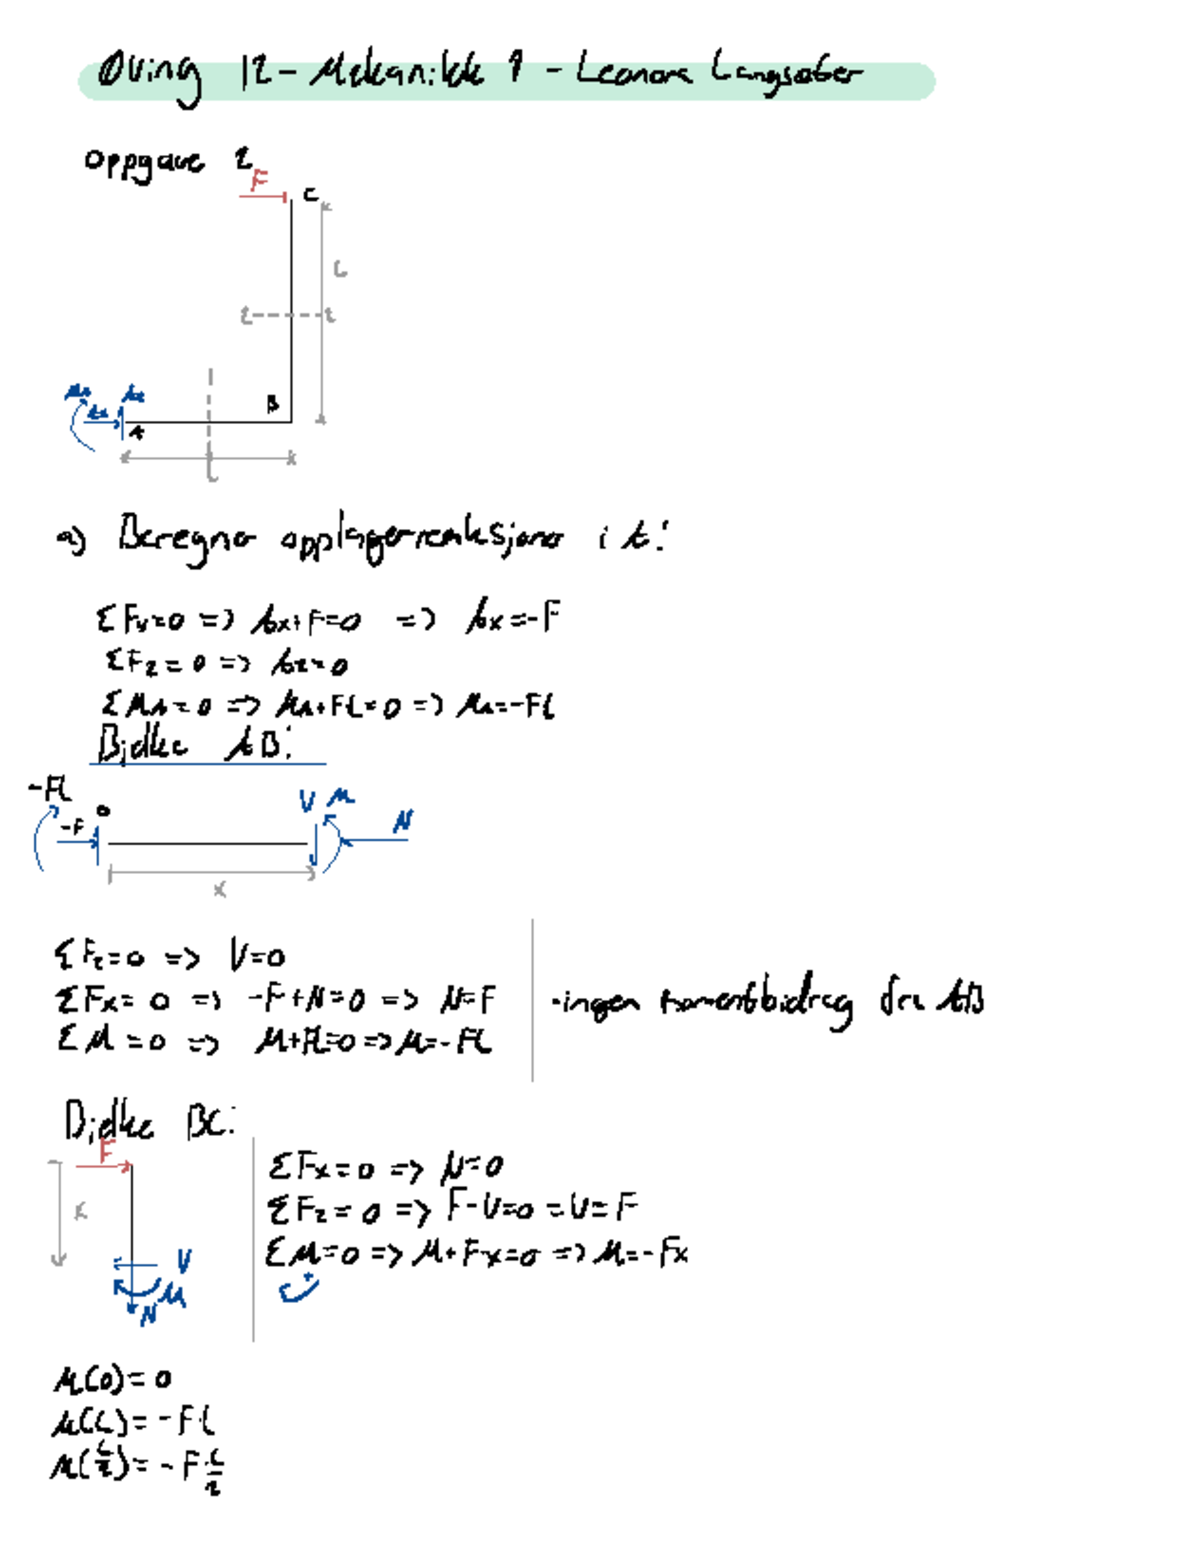 Øving 12 - Mekanikk 1 - Leonora Langsæter
Oppgave 2
F
C
L
B
A
L
a) Beregner opplagerreaksjoner i A:
ΣFx=0 => Ax+F=0 => Ax=-F
ΣFz=0 => Az=0
ΣMA=0 => MA+FL=0 => MA=-FL
Bjelke AB:
-FL
-F
0
V M
N
x
ΣFz=0 => V=0
ΣFx=0 => -F+N=0 => N=F
ΣM=0 => M+FL=0 => M=-FL
-ingen momentbidrag fra AB
Bjelke BC:
F
x
V
M
N
ΣFx=0 => N=0
ΣFz=0 => F-V=0 = V=F
ΣM=0 => M+Fx=0 => M=-Fx
+
M(0)=0
M(L)=-F·L
M(L/2)=-F·L/2